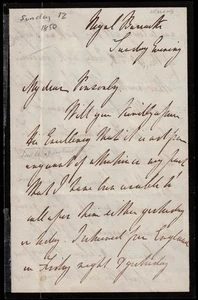 Sunday 12
1850
Royal Barracks
Sunday Evening
My dear Ponsonby,
Will you kindly assure
His Excellency that it is not from
any want of attention on my part
that I have been unable to
call upon him either yesterday
or today I returned from England
on Friday night & yesterday